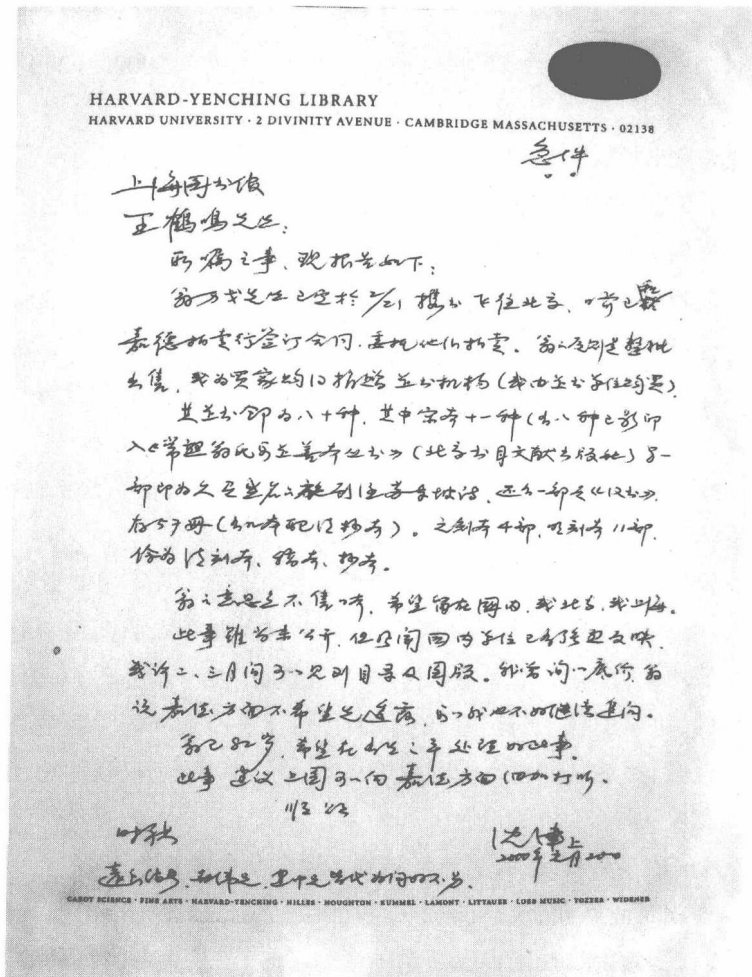 HARVARD-YENCHING LIBRARY
HARVARD UNIVERSITY · 2 DIVINITY AVENUE · CAMBRIDGE MASSACHUSETTS · 02138
急件
上海图书馆
王鹤鸣先生:
所嘱之事、现报告如下:
翁万戈先生已定于2/21携书飞往北京,目前已和
嘉德拍卖行签订合同,委托他们拍卖。翁之原则是整批
出售,或为买家均得捐赠至书机构(或由至书单位购置)
其至书全部为八十种,其中宋本十一种(有八种已影印
入《常熟翁氏所至善本丛书》(北京书目文献出版社)另一
部即为
还有一部是《汉书》,
存57册(有几本配清抄本)。元刻本4部,明刻本11部,
馀为清刻本、稿本、抄本。
翁之意思是不售日本,希望留在国内,或北京,或上海。
此事虽尚未公开,但
国内单位已有强烈反映,
或许二、三月间可以见到目录及图版。我曾问一底价,翁
说嘉德方面不希望先透露,所以我也不好继续追问。
翁已82岁,希望在有生之年处理好此事。
此事建议上图可以向嘉德方面细加打听。
顺颂
时祺
沈津上
2000年元月20日
CABOT SCIENCE · FINE ARTS · HARVARD-YENCHING · HILLES · HOUGHTON · KUMMEL · LAMONT · LITTAUER · LOEB MUSIC · TOZZER · WIDENER